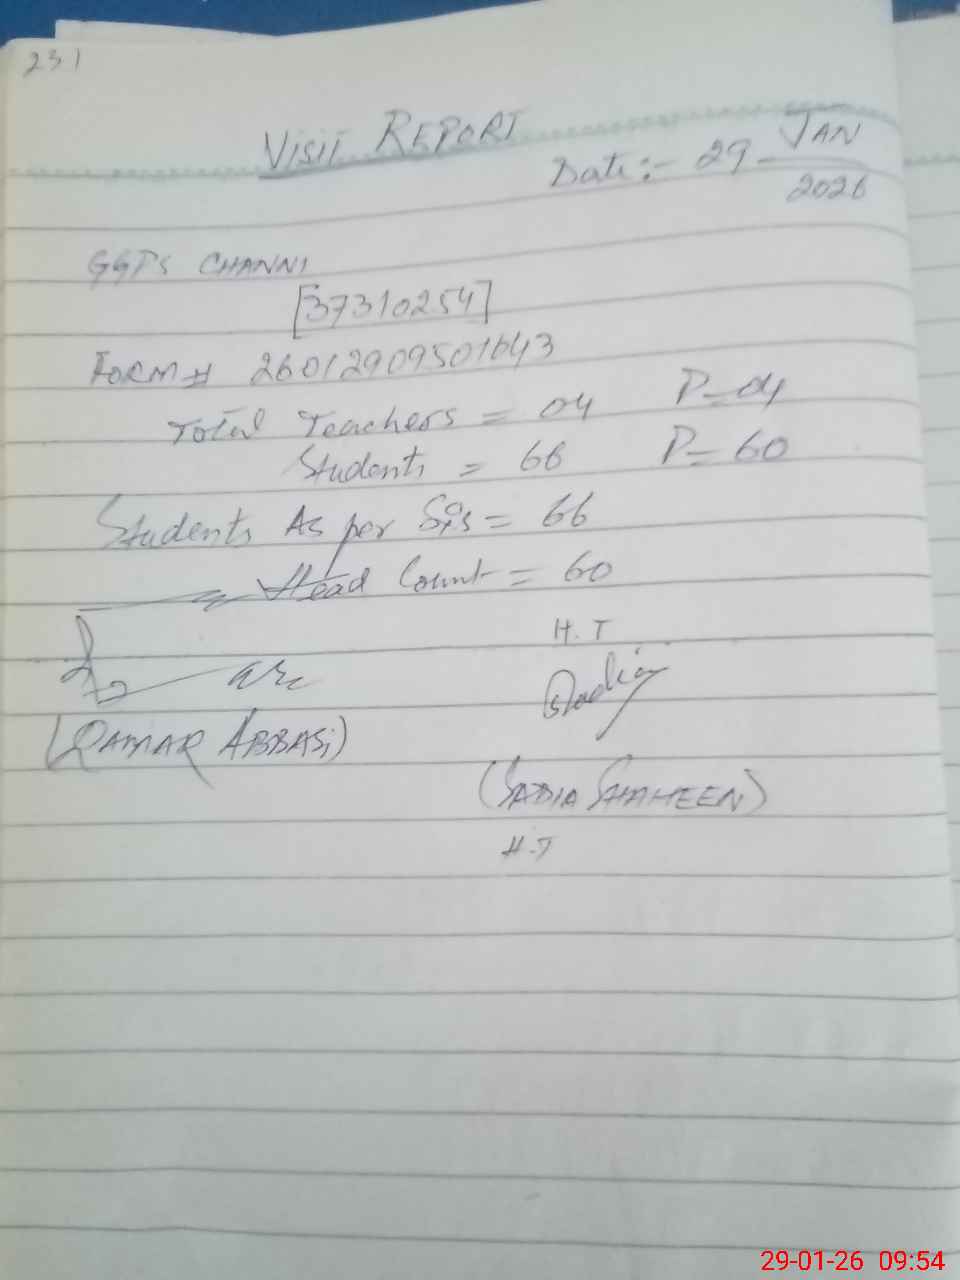 231
VISIT REPORT
Date:- 29-JAN
2026
GGPS CHANNI
[37310254]
FORM# 26012909501643
Total Teachers = 04 P=04
Students = 66 P=60
Students As per Sis = 66
Head Count = 60
H.T
Sadia
(QAMAR ABBASi)
(SADIA SHAHEEN)
H.T
29-01-26 09:54